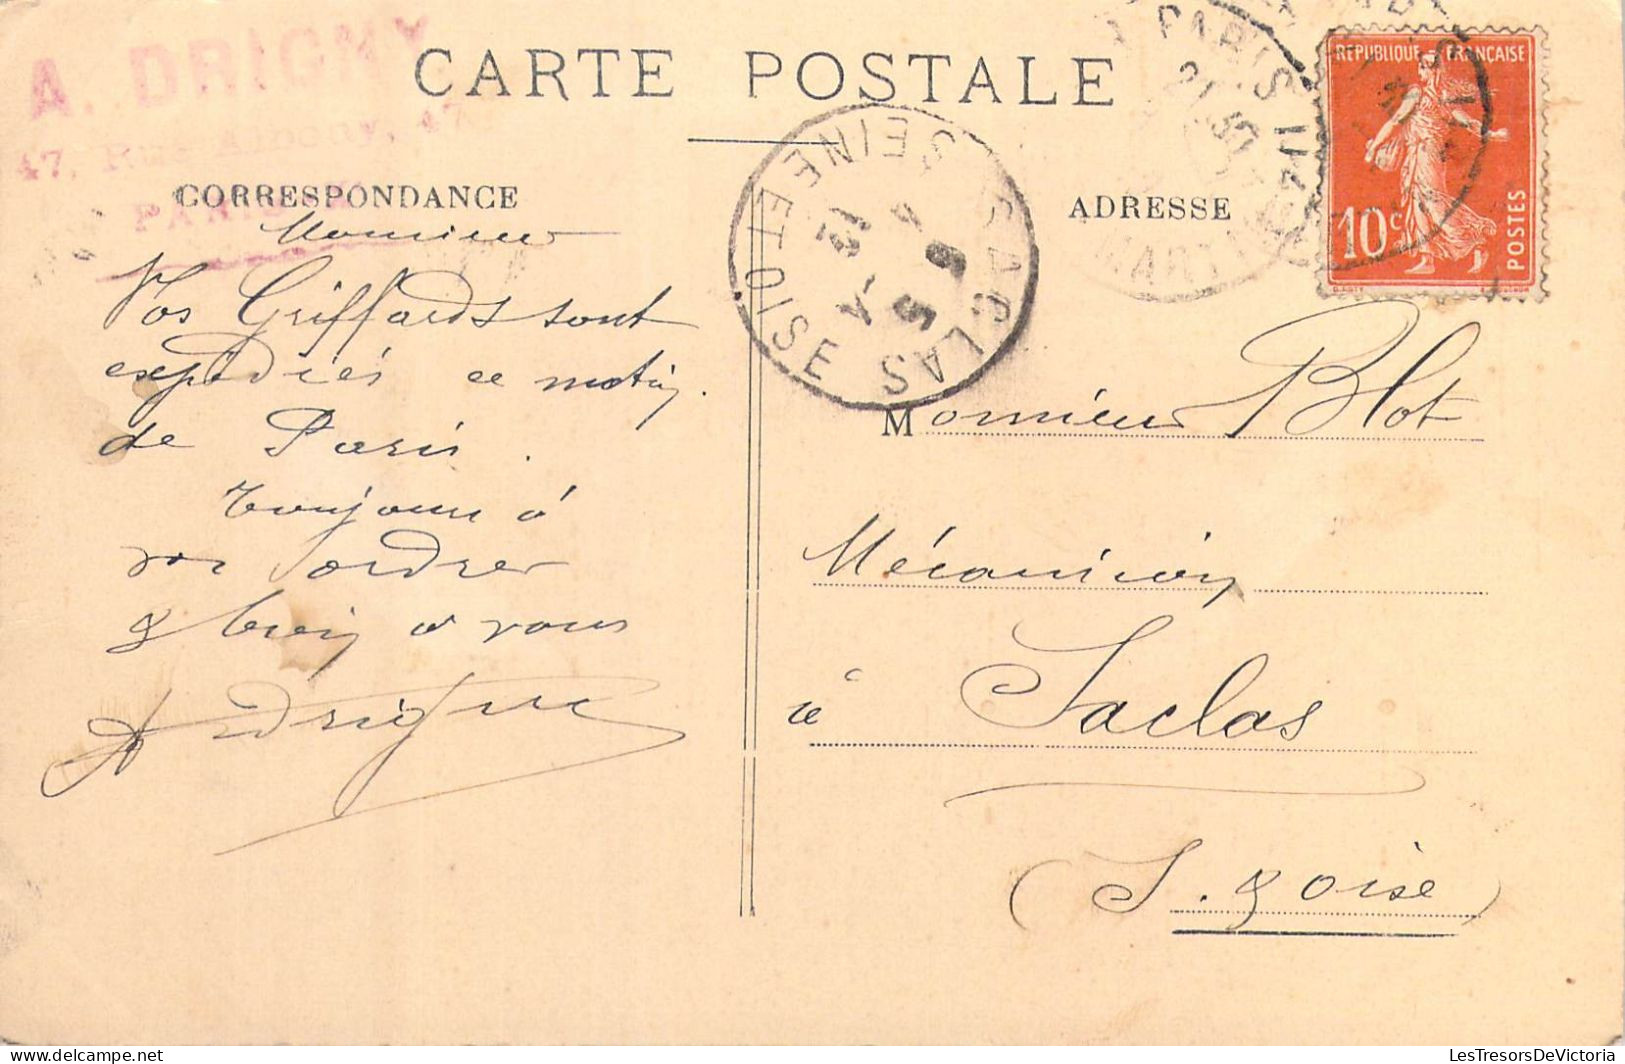 A. DRIGNY
47, Rue 47
PARIS
CARTE POSTALE
CORRESPONDANCE
ADRESSE
SEINE ET OISE SACLAS
PARIS
RÉPUBLIQUE FRANÇAISE
10c
POSTES
Monsieur
Vos Griffards sont
expédiés ce matin
de Paris.
Toujours à
vos ordres
& bien à vous
ADrigny
Monsieur Blot
Mécanicien
à Saclas
(S. & Oise)
LesTresorsDeVictoria